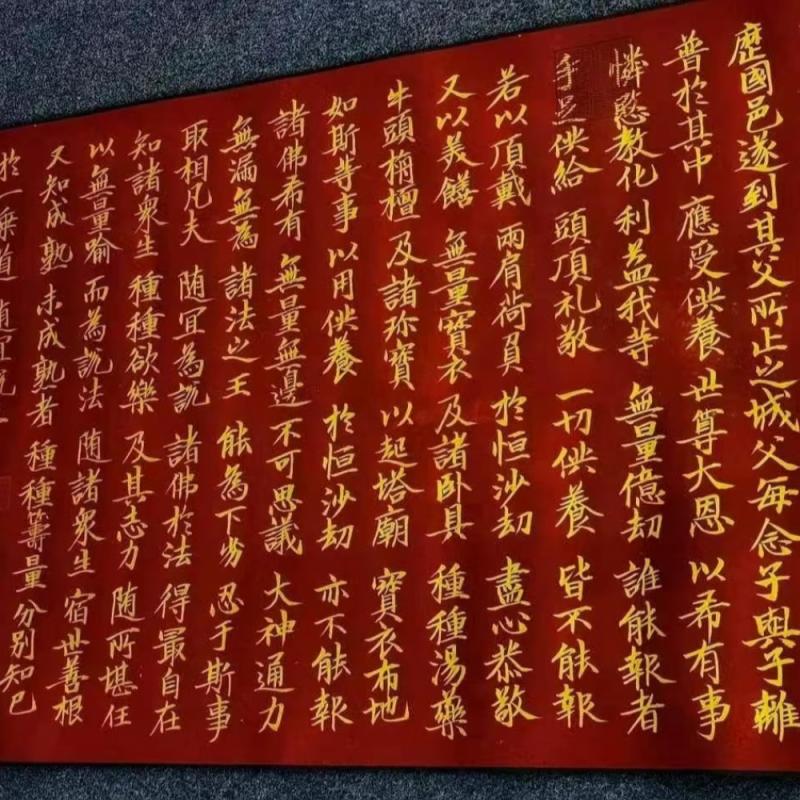 歷國邑遂到其父所止之城父每念子與子離
普於其中應受供養世尊大恩以希有事
憐愍教化利益我等無量億劫誰能報者
手足供給頭頂礼敬一切供養皆不能報
若以頂戴兩肩荷負於恒沙劫盡心恭敬
又以美饍無量寶衣及諸卧具種種湯藥
牛頭栴檀及諸珎寶以起塔廟寶衣布地
如斯等事以用供養於恒沙劫亦不能報
諸佛希有無量無邊不可思議大神通力
無漏無為諸法之王能為下劣忍于斯事
取相凡夫随宜為說諸佛於法得最自在
知諸衆生種種欲樂及其志力随所堪任
以無量喻而為說法随諸衆生宿世善根
又知成熟未成熟者種種籌量分别知已
於一乘道随宜說